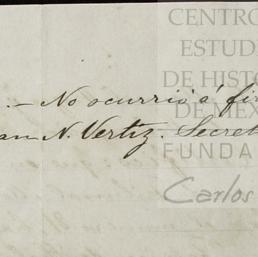 CENTRO
ESTUD
DE HISTO
DE MÉX
FUNDA
Carlos
.— No ocurrió á fir
an N. Vertiz. Secret